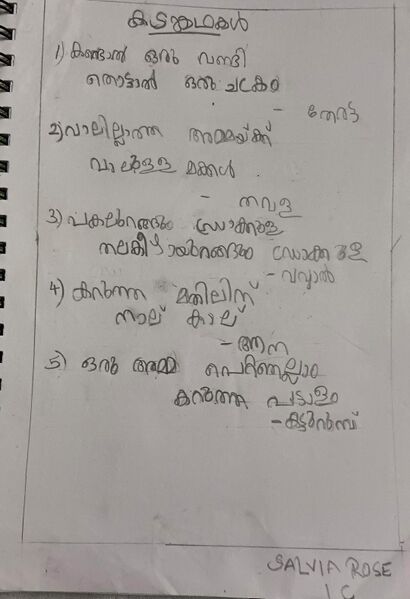 കടങ്കഥകൾ
1) കണ്ടാൽ ഒരു വണ്ടി
തൊട്ടാൽ ഒരു ചക്രം
- തേരട്ട
2) വാലില്ലാത്ത അമ്മയ്ക്ക്
വാലുള്ള മക്കൾ .
- തവള
3) പകലുറങ്ങും ഡോക്ടർ
തലകീഴായുറങ്ങും ഡോക്ടർ
- വവ്വാൽ
4) കറുത്ത മതിലിന്
നാല് കാല്
- ആന
5) ഒരു അമ്മ പെറ്റതെല്ലാം
കറുത്ത പട്ടാളം
- കട്ടുറുമ്പ്
SALVIA ROSE
1 C